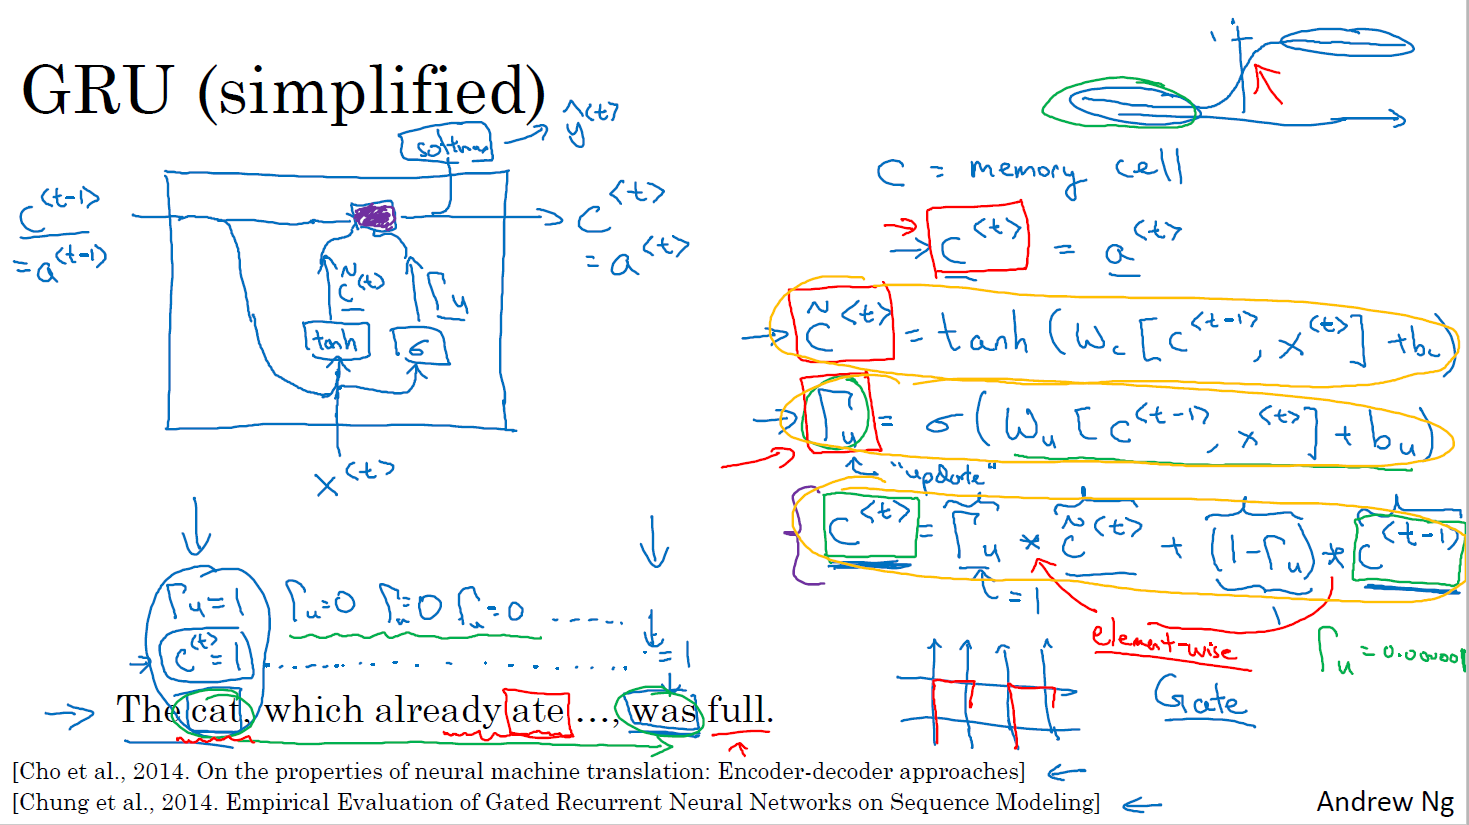 GRU (simplified)
softmax
ŷ<t>
c<t-1>
= a<t-1>
c<t>
= a<t>
c̃<t>
Γu
tanh
σ
x<t>
1
C = memory cell
c<t> = a<t>
c̃<t> = tanh(Wc[c<t-1>, x<t>] + bc)
Γu = σ(Wu[c<t-1>, x<t>] + bu)
"update"
c<t> = Γu * c̃<t> + (1-Γu) * c<t-1>
= 1
element-wise
Γu = 0.000001
Gate
Γu=1 Γu=0 Γu=0 Γu=0 ......
c<t>=1 .......... =1
The cat, which already ate ..., was full.
[Cho et al., 2014. On the properties of neural machine translation: Encoder-decoder approaches]
[Chung et al., 2014. Empirical Evaluation of Gated Recurrent Neural Networks on Sequence Modeling]
Andrew Ng